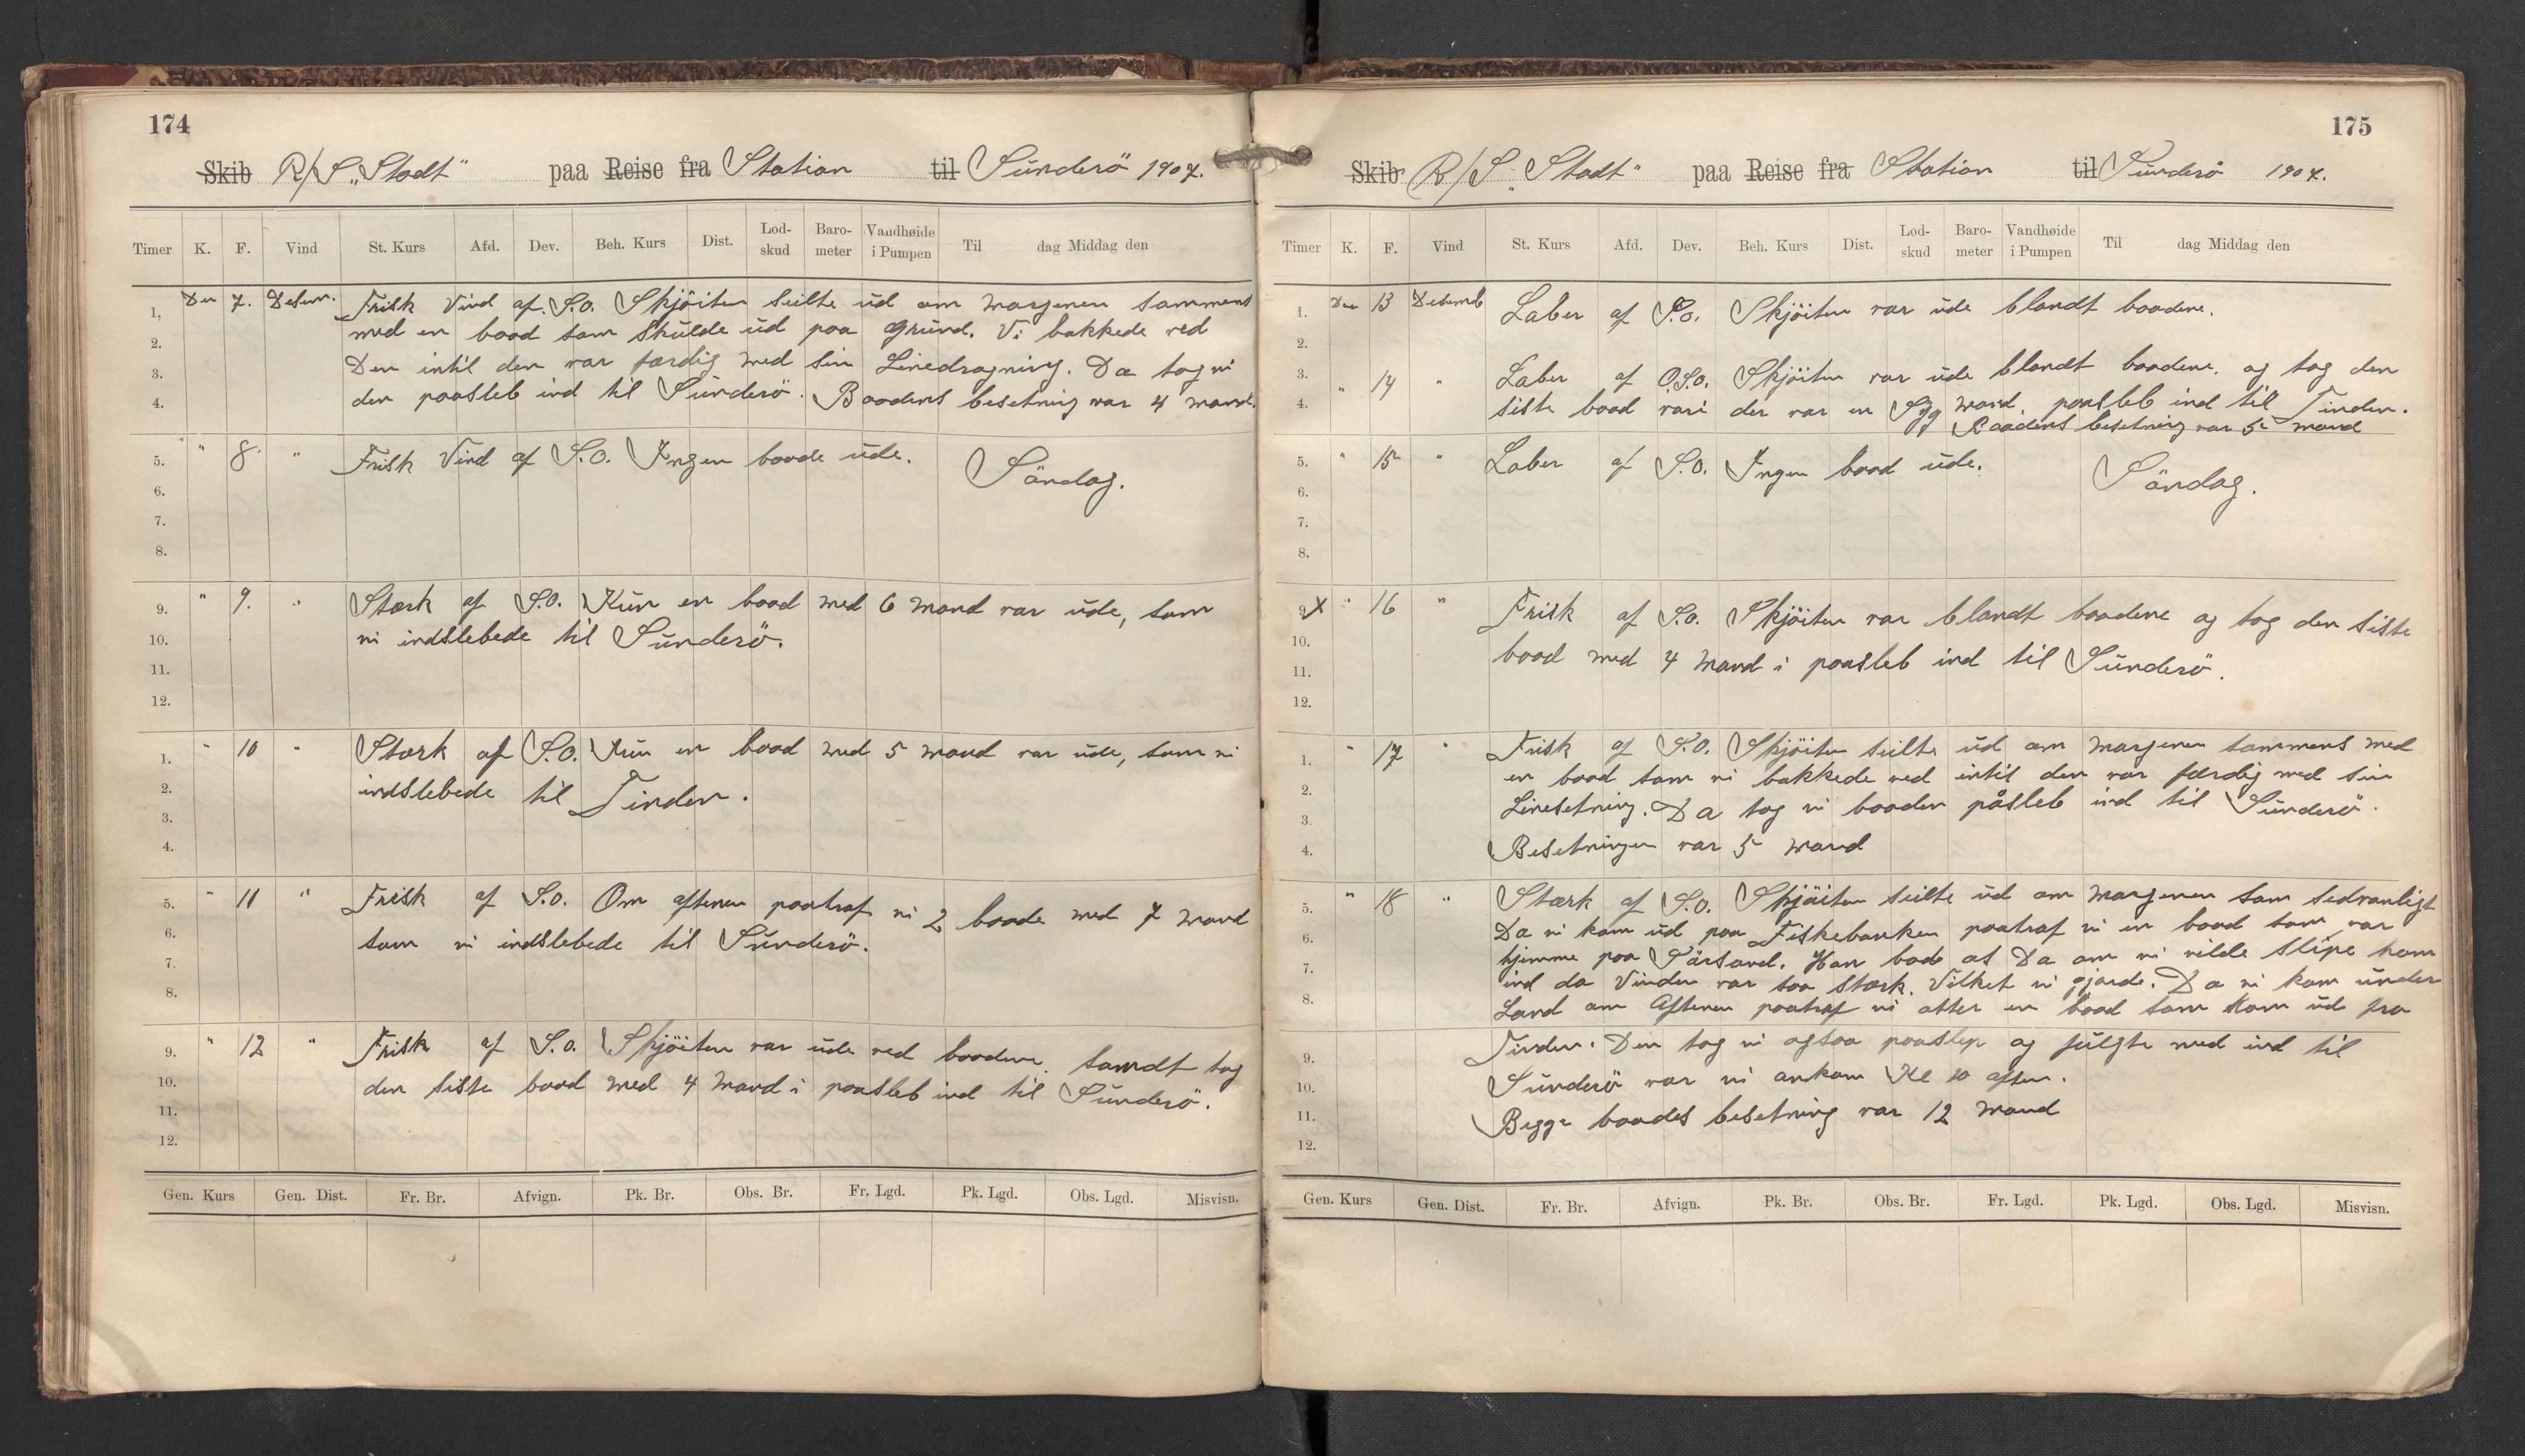 174
Skib R/S „Stadt" paa Reise fra Station til Sunderö 1907.
Timer K. F. Vind St. Kurs Afd. Dev. Beh. Kurs Dist. Lod-skud Baro-meter Vandhøide i Pumpen Til dag Middag den
1, Den 7. Desem. Frisk Vind af S.O. Skjöiten seilte ud om morgenen sammens
2. med en baad som skulde ud paa Grund. Vi bakkede ved
3. Den intil den var færdig med sin Linedragning. Da tog vi
4. den paasleb ind til Sunderö. Baadens besetning var 4 mand.
5. " 8. " Frisk Vind af S.O. Ingen baade ude. Söndag.
6.
7.
8.
9. " 9. " Stærk af S.O. Kun en baad med 6 mand var ude, som
10. vi indslebede til Sunderö.
11.
12.
1. " 10 " Stærk af S.O. Kun en baad med 5 mand var ude, som vi
2. indslebede til Tinden.
3.
4.
5. " 11 " Frisk af S.O. Om aftenen paatraf vi 2 baade med 7 mand
6. som vi indslebede til Sunderö.
7.
8.
9. " 12 " Frisk af S.O. Skjöiten var ude ved baadene. samdt tog
10. den siste baad med 4 mand i paasleb ind til Sunderö.
11.
12.
Gen. Kurs Gen. Dist. Fr. Br. Afvign. Pk. Br. Obs. Br. Fr. Lgd. Pk. Lgd. Obs. Lgd. Misvisn.
175
Skib R/S „Stadt" paa Reise fra Station til Sunderö 1907.
Timer K. F. Vind St. Kurs Afd. Dev. Beh. Kurs Dist. Lod-skud Baro-meter Vandhøide i Pumpen Til dag Middag den
1. Den 13 Desemb Laber af S.O. Skjöiten var ude blandt baadene.
2.
3. " 14 " Laber af O.S.O. Skjöiten var ude blandt baadene. og tog den
4. siste baad vari der var en Syg mand. paasleb ind til Tinden.
Baadens besetning var 5 mand
5. " 15 " Laber af S.O. Ingen baad ude. Söndag.
6.
7.
8.
9. X " 16 " Frisk af S.O. Skjöiten var blandt baadene og tog den siste
10. baad med 4 mand i paasleb ind til Sunderö.
11.
12.
1. " 17 " Frisk af S.O. Skjöiten seilte ud om morgenen sammens med
2. en baad som vi bakkede ved intil den var færdig med sin
3. Linesetning. Da tog vi baaden påsleb ind til Sunderö.
4. Besetningen var 5 mand
5. " 18 " Stærk af S.O. Skjöiten seilte ud om morgenen som sedvanligt
6. Da vi kom ud paa Fiskebanken paatraf vi en baad som var
7. hjemme paa Han bad at Da om vi vilde slipe ham
ind da Vinden var saa stærk. Vilket vi gjorde. Da vi kom under
8. Land om Aftenen paatraf vi atter en baad som kom ud fra
9. Tinden. Den tog vi ogsaa paaslep og fulgte med ind til
10. Sunderö var vi ankom Kl 10 aften.
11. Begge baades besetning var 12 mand
12.
Gen. Kurs Gen. Dist. Fr. Br. Afvign. Pk. Br. Obs. Br. Fr. Lgd. Pk. Lgd. Obs. Lgd. Misvisn.